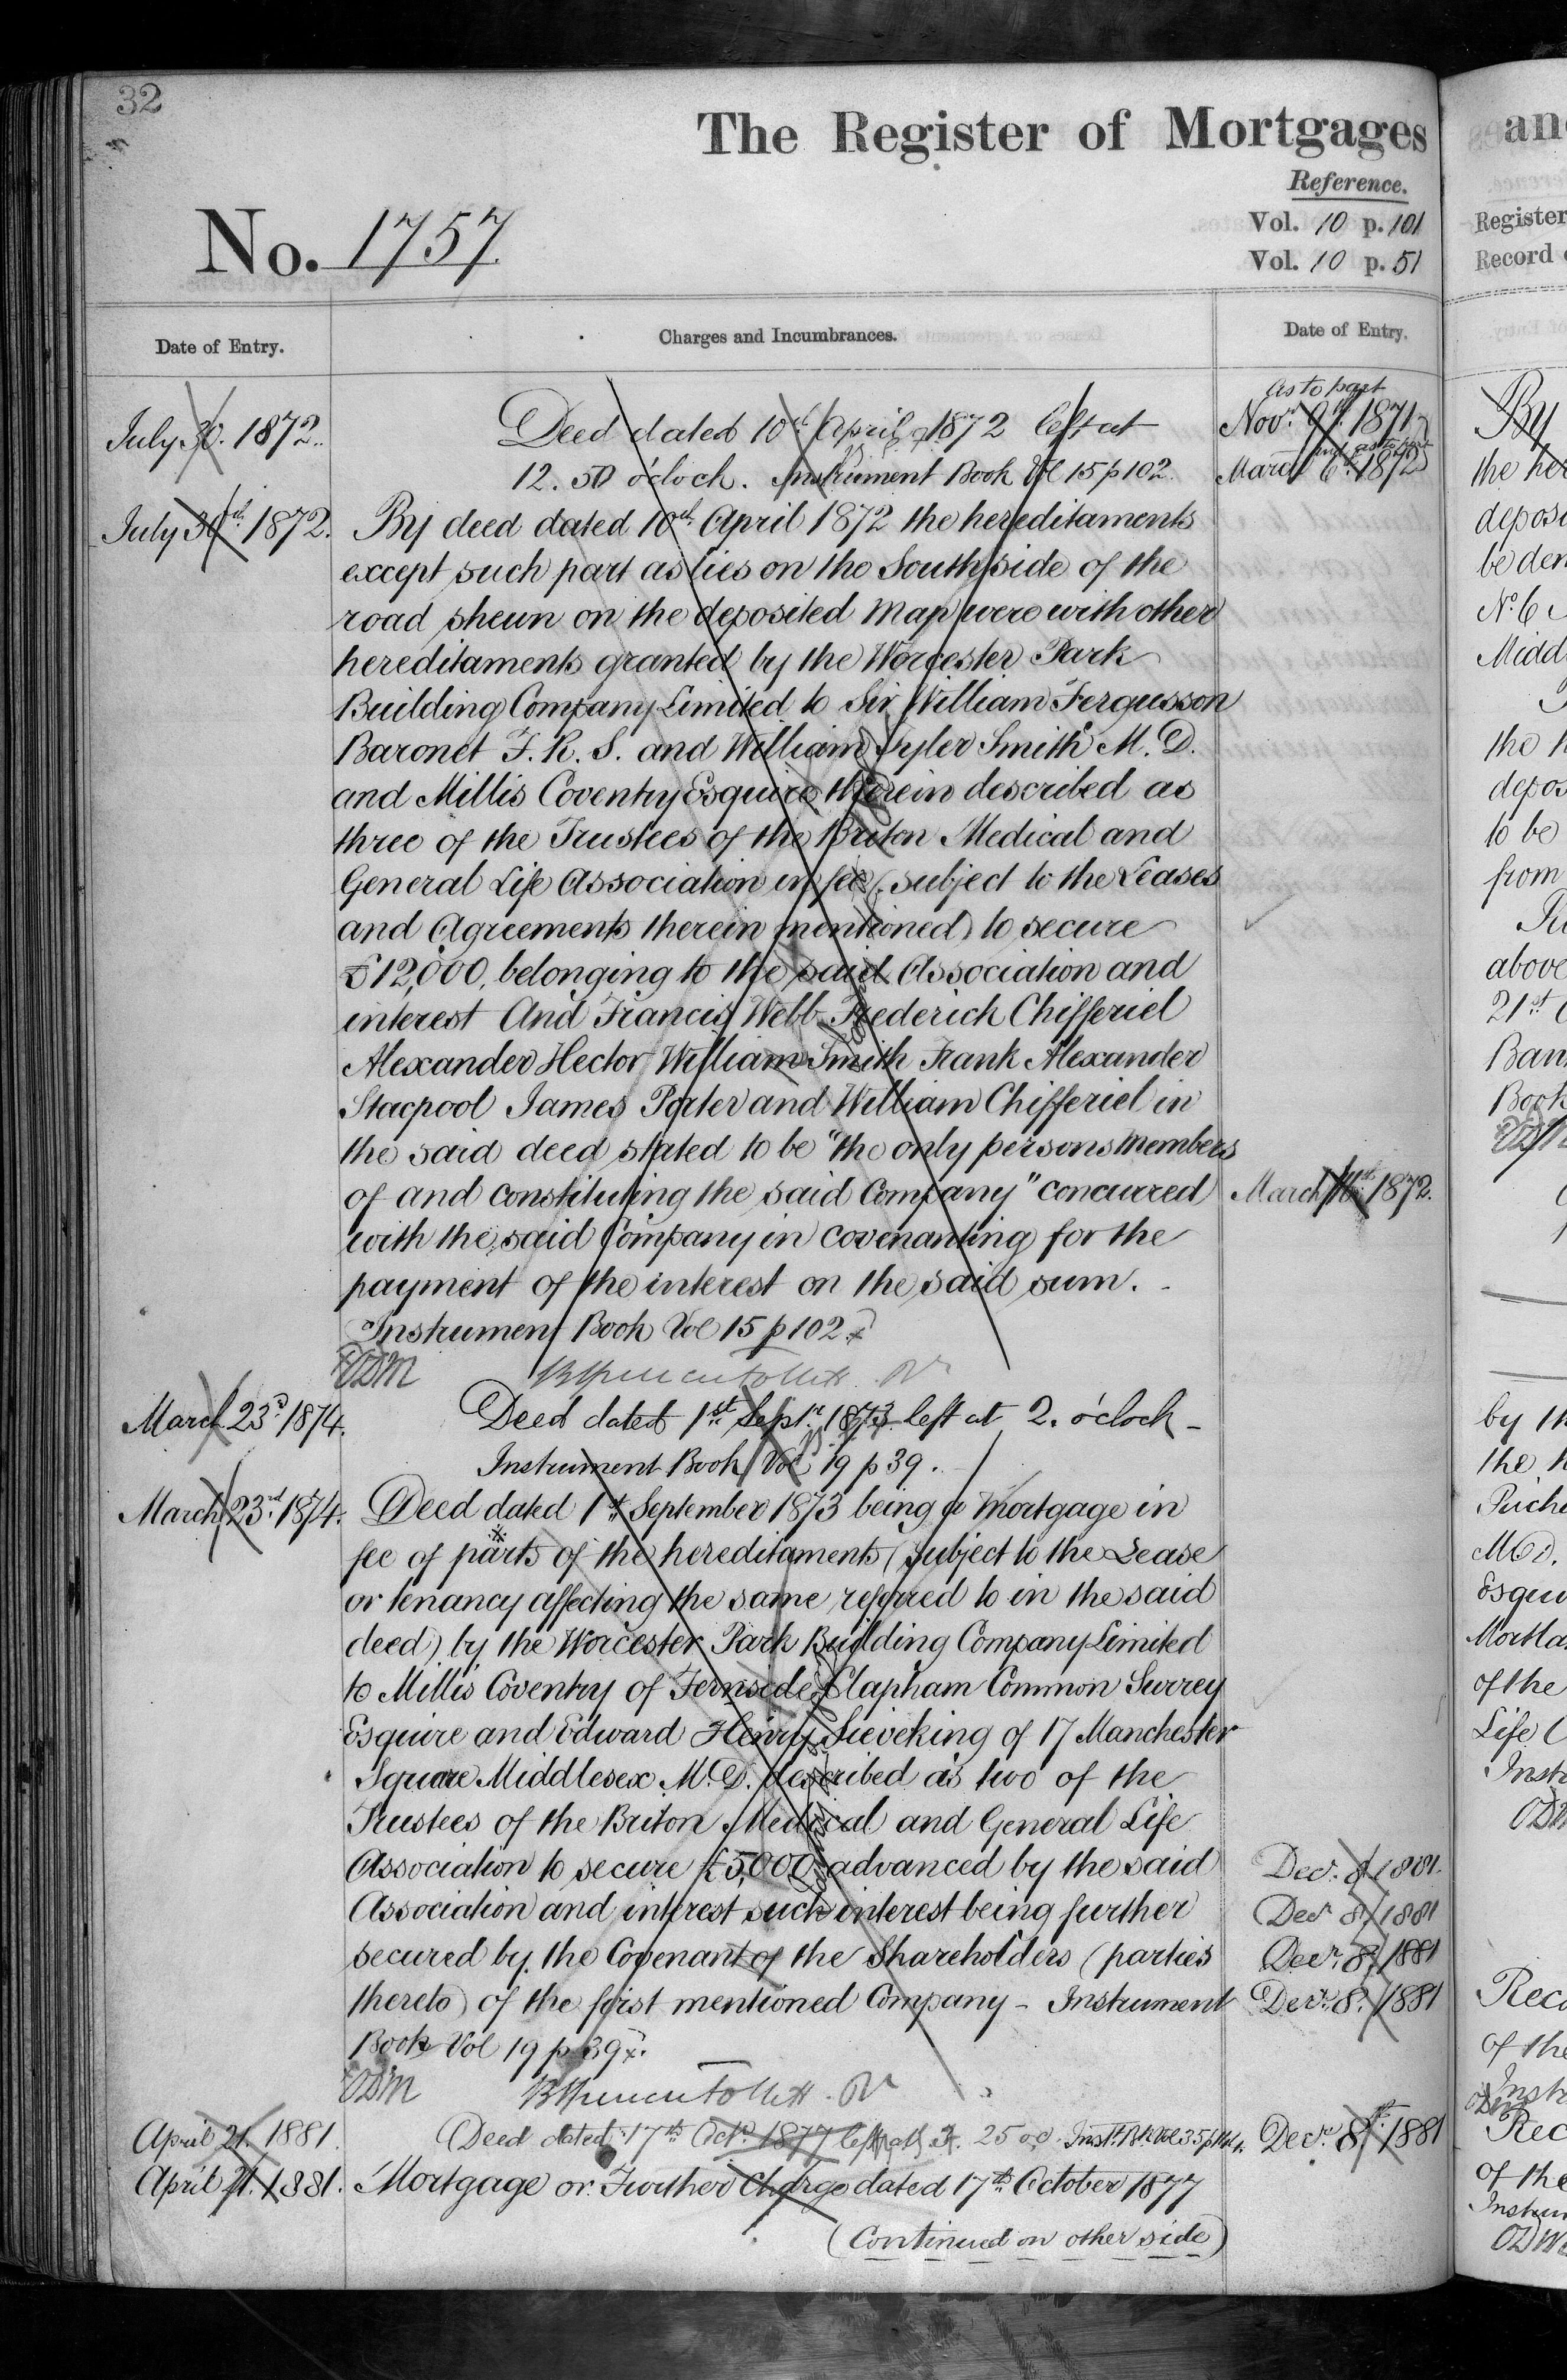 32
The Register of Mortgages
Reference.
No. 1757.
Vol. 10 p. 101
Vol. 10 p. 51
Date of Entry.
Charges and Incumbrances.
Date of Entry.
July 30. 1872.
Deed dated 10th April 1872 left at
12.50 o'clock. Instrument Book Vol 15 p 102.
July 30th 1872.
By deed dated 10th April 1872 the hereditaments
except such part as lies on the South side of the
road shewn on the deposited Map were with other
hereditaments granted by the Worcester Park
Building Company Limited to Sir William Fergusson
Baronet F. R. S. and William Tyler Smith M. D.
and Millis Coventry Esquire therein described as
three of the Trustees of the Briton Medical and
General Life Association in fee (subject to the Leases
and Agreements therein mentioned) to secure
£12,000, belonging to the said Association and
interest And Francis Webb Frederick Chifferiel
Alexander Hector William Smith Frank Alexander
Stacpool James Porter and William Chifferiel in
the said deed stated to be "the only persons members
of and constituting the said Company" concurred
with the said Company in covenanting for the
payment of the interest on the said sum.
Instrument Book Vol 15 p 102
ODM
March 23d 1874.
Deed dated 1st Septr. 1873 left at 2. o'clock -
Instrument Book Vol 19 p 39.
March 23rd 1874.
Deed dated 1st September 1873 being a Mortgage in
fee of parts of the hereditaments (subject to the Lease
or tenancy affecting the same referred to in the said
deed) by the Worcester Park Building Company Limited
to Millis Coventry of Fernside Clapham Common Surrey
Esquire and Edward Henry Sieveking of 17 Manchester
Square Middlesex M. D. described as two of the
Trustees of the Briton Medical and General Life
Association to secure £5,000 advanced by the said
Association and interest such interest being further
secured by the Covenant of the Shareholders (parties
thereto) of the first mentioned Company - Instrument
Book Vol 19 p 39
ODM
April 21. 1881.
Deed dated 17th Octr. 1877 left at
April 21. 1881.
Mortgage or Further Charge dated 17th October 1877
(Continued on other side)
As to part
Novr. 9th. 1871
March 6th. 1872
March 1872.
Decr. 8. 1881.
Decr 8. 1881
Decr. 8. 1881
Decr. 8. 1881
Decr. 8th. 1881
an
Register
Record
By
the her
depos
be den
No. 6
Midd
the h
depos
to be
from
above
21st
Ban
Book
by th
the h
M.D.
Esqui
of the
Life
Inst
ODM
Reco
of the
Inst
Rec
of the
Instrum
ODM